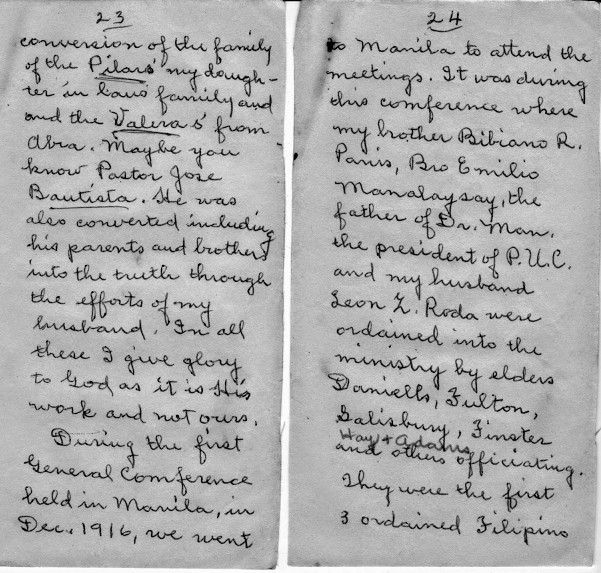 23
conversion of the family
of the Pilars' my daugh-
ter in laws family and
and the Valera's' from
Abra. Maybe you
know Pastor Jose
Bautista. He was
also converted including
his parents and brothers
into the truth through
the efforts of my
husband. In all
these I give glory
to God as it is His
work and not ours.
During the first
General Conference
held in Manila, in
Dec. 1916, we went
24
to Manila to attend the
meetings. It was during
this conference where
my brother Bibiano R.
Panis, Bro Emilio
Manalaysay, the
father of Dr. Man.
the president of P.U.C.
and my husband
Leon Z. Roda were
ordained into the
ministry by elders
Daniells, Fulton,
Salisbury, Finster
Hay + Adams
and others officiating.
They were the first
3 ordained Filipino